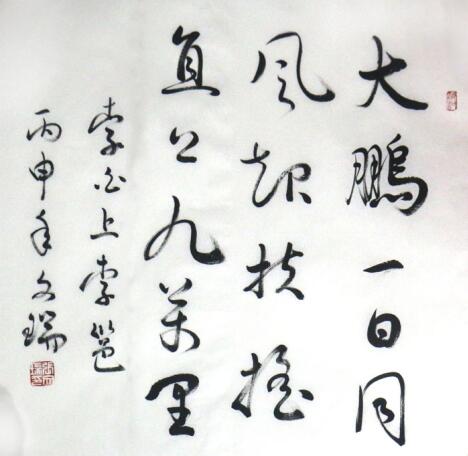 大鵬一日同
風起扶搖
直上九萬里
李白上李邕
丙申年文瑞